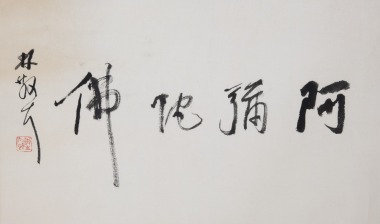 阿彌陀佛
林散之